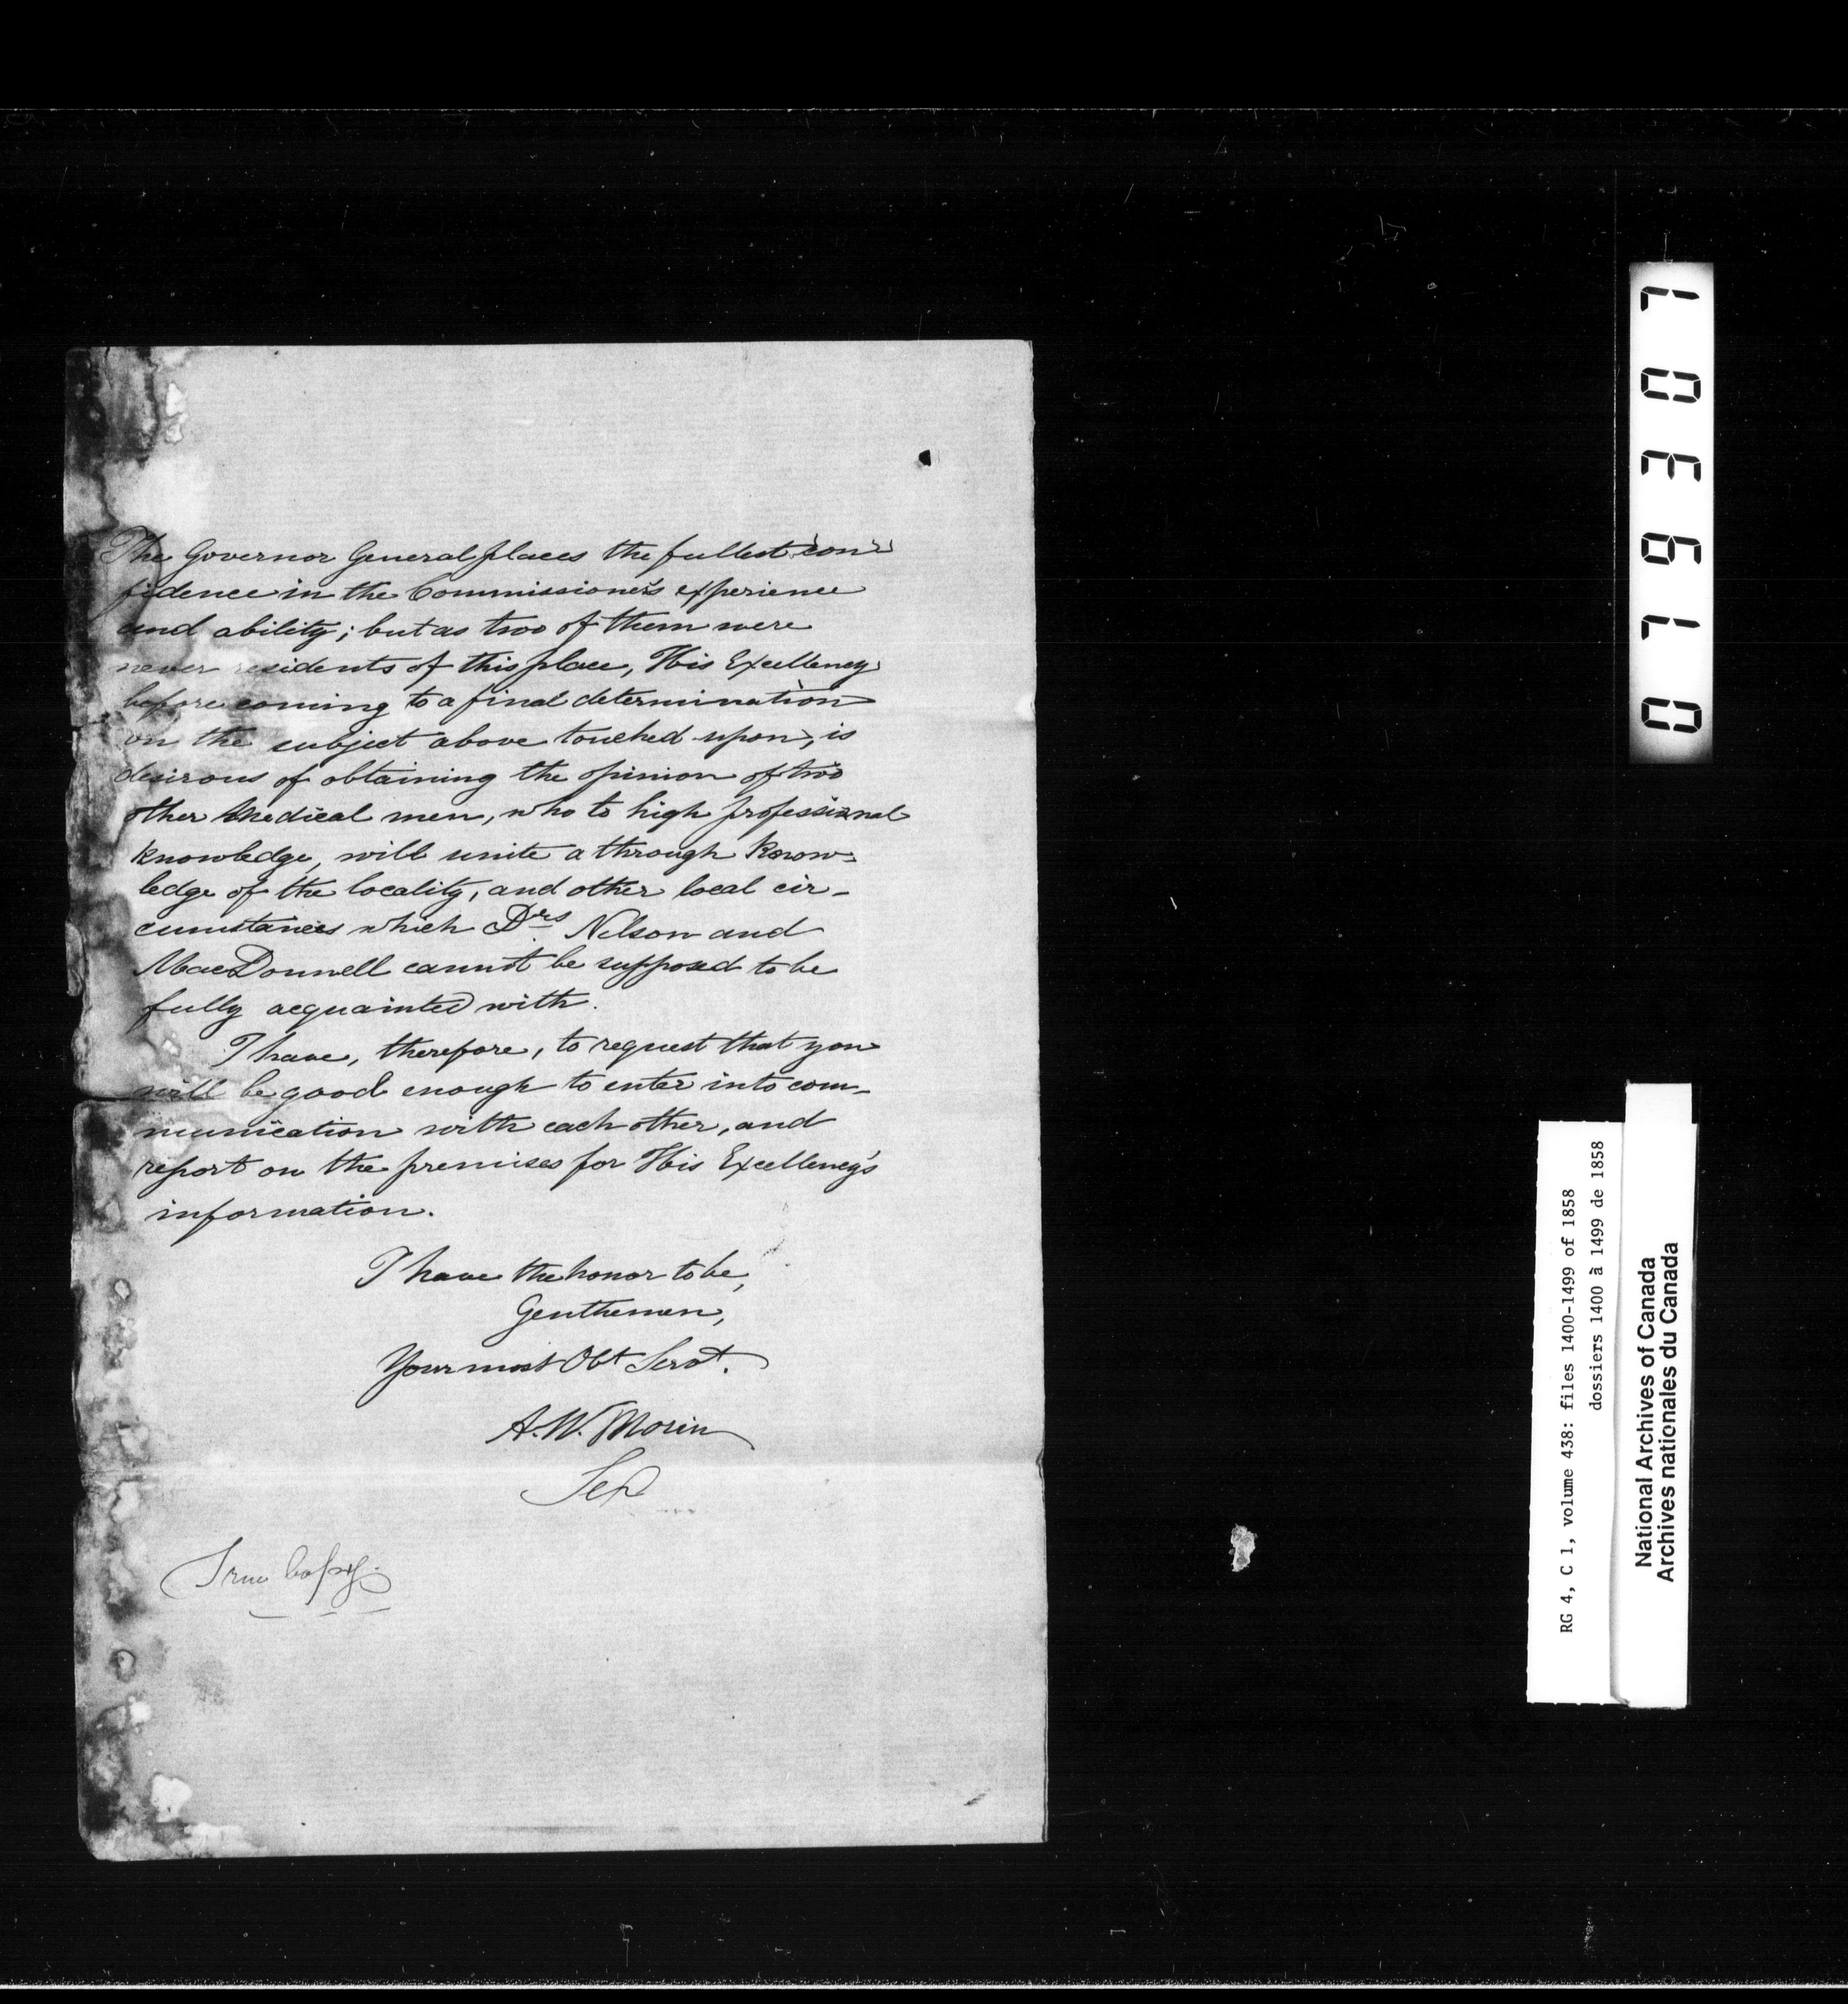 The Governor General places the fullest con-
fidence in the Commissioner's experience
and ability; but as two of them were
never residents of this place, His Excellency
before coming to a final determination
on the subject above touched upon, is
desirous of obtaining the opinion of two
other Medical men, who to high professional
knowledge, will unite a through Know-
ledge of the locality, and other local cir-
cumstances which Drs Nelson and
MacDonnell cannot be supposed to be
fully acquainted with.
I have, therefore, to request that you
will be good enough to enter into com-
munication with each other, and
report on the premises for His Excellency's
information.
I have the honor to be,
Genthemen,
Your most Obt Servt.
A. W. Morin
True Copy.
079307
RG 4, C 1, volume 438: files 1400-1499 of 1858
dossiers 1400 à 1499 de 1858
National Archives of Canada
Archives nationales du Canada